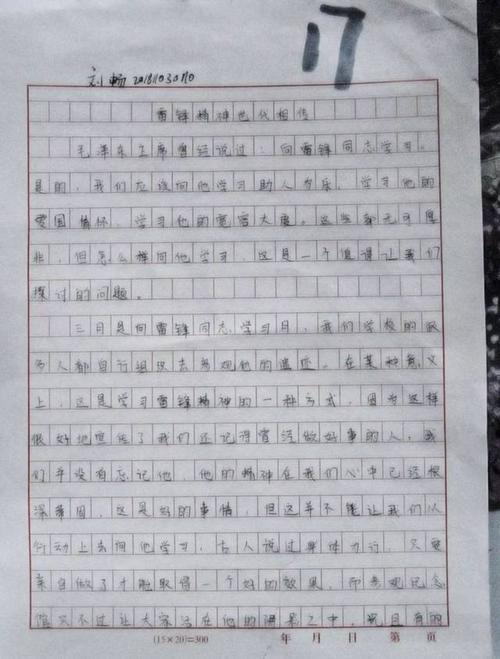 17
刘畅 2018103010
雷锋精神世代相传
毛泽东主席曾经说过：向雷锋同志学习。
是的，我们应该向他学习助人为乐，学习他的
爱国情怀，学习他的宽容大度。这些都无可厚
非，但怎么样向他学习，这是一个值得让我们
探讨的问题。
三月是向雷锋同志学习月，我们学校的
多人都自行组织去参观他的遗迹。在某种意义
上，这是学习雷锋精神的一种方式，因为这样
很好地宣传了我们还记得曾经做好事的人，我
们并没有忘记他，他的精神在我们心中已经根
深蒂固，这是好的事情，但这并不能让我们从
行动上去向他学习，古人说过身体力行，只要
亲自做了才能取得一个好的效果，而参观纪念
馆只不过让大家活在他的阴影之中，况且有的
(15×20)=300 年 月 日 第 页